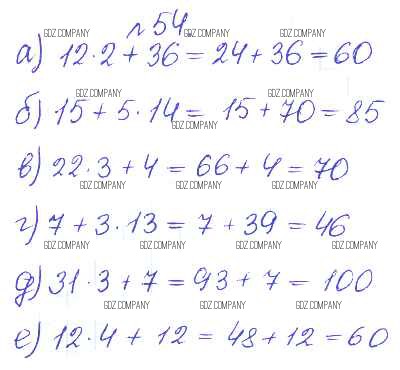 № 54.
GDZ.COMPANY GDZ.COMPANY GDZ.COMPANY
а) 12·2 + 36 = 24 + 36 = 60
GDZ.COMPANY GDZ.COMPANY GDZ.COMPANY
б) 15 + 5·14 = 15 + 70 = 85
GDZ.COMPANY
в) 22·3 + 4 = 66 + 4 = 70
GDZ.COMPANY GDZ.COMPANY GDZ.COMPANY
г) 7 + 3·13 = 7 + 39 = 46
GDZ.COMPANY GDZ.COMPANY GDZ.COMPANY GDZ.COMPANY
д) 31·3 + 7 = 93 + 7 = 100
GDZ.COMPANY GDZ.COMPANY GDZ.COMPANY
е) 12·4 + 12 = 48 + 12 = 60